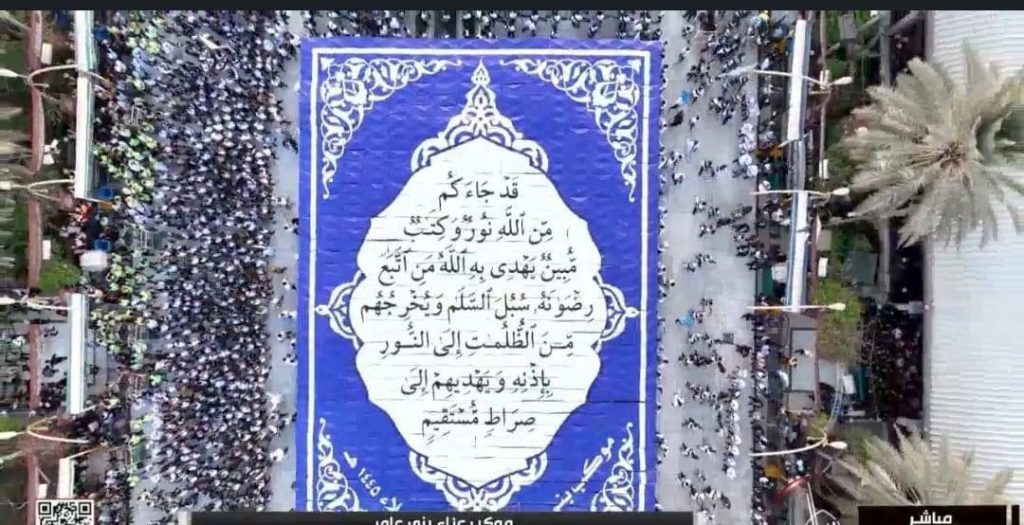 قَدْ جَاءَكُم
مِّنَ ٱللَّهِ نُورٌ وَكِتَٰبٌ
مُّبِينٌ يَهْدِى بِهِ ٱللَّهُ مَنِ ٱتَّبَعَ
رِضْوَٰنَهُۥ سُبُلَ ٱلسَّلَٰمِ وَيُخْرِجُهُم
مِّنَ ٱلظُّلُمَٰتِ إِلَى ٱلنُّورِ
بِإِذْنِهِۦ وَيَهْدِيهِمْ إِلَىٰ
صِرَاطٍ مُّسْتَقِيمٍ
موكب بني
١٤٤٥ هـ
موكب عزاء بني عامر
مباشر